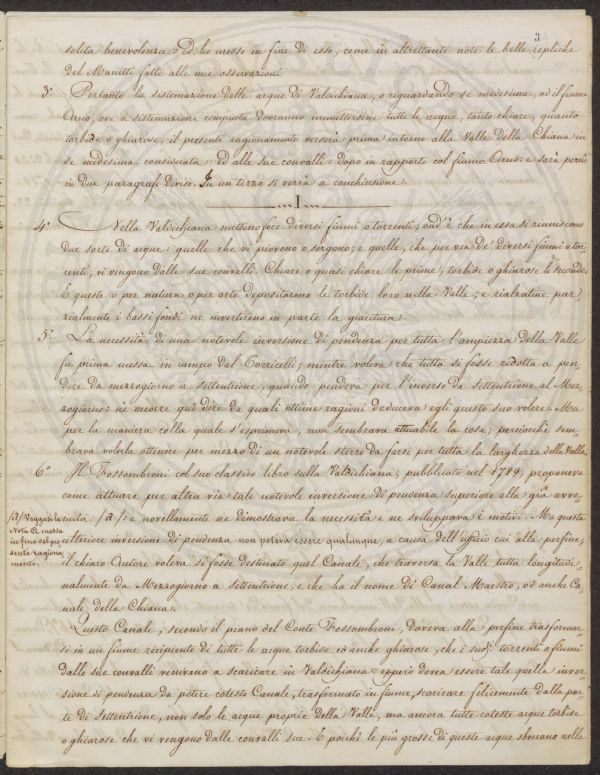 3
solita benevolenza: ed ho messo in fine di esso, come in altrettante note le belle repliche
del Manetti fatte alle mie osservazioni
3.° Pertanto la sistemazione delle acque di Valdichiana, o riguardando se medesima, od il fiume
Arno, ove a sistemazione compiuta dovranno immettersene tutte le acque, tanto chiare, quanto
torbide o ghiarose, il presente ragionamento verserà prima intorno alla Valle della Chiana in
se medesima considerata ed alle sue convalli: dopo in rapporto col fiume Arno: e sarà perciò
in due paragrafi diviso. In un terzo si verrà a conchiusione.
I
4.° Nella Valdichiana mettono foce diversi fiumi o torrenti, ond'è che in essa si riuniscono
due sorte di acque: quelle che vi piovono o sorgono; e quelle, che per via de' diversi fiumi o tor
renti, vi vengono dalle sue convalli. Chiare o quasi chiare le prime; torbide o ghiarose le seconde.
E queste o per natura o per arte depositarono le torbide loro nella Valle; e rialzatine par
zialmente i bassi fondi ne invertirono in parte la giacitura.
5.° La necessità di una notevole inversione di pendenza per tutta l'ampiezza della Valle
fu prima messa in campo dal Torricelli; mentre voleva che tutta si fosse ridotta a pen-
dere da mezzogiorno a settentrione, quando pendeva per l'inverso da Settentrione al Mez-
zogiorno: ne occorre qui dire da quali ottime ragioni deduceva egli questo suo volere. Ma
per la maniera colla quale s'esprimeva non sembrava attuabile la cosa; perciocchè sem-
brava volerla ottenere per mezzo di un notevole sterro da farsi per tutta la larghezza della Valle.
6.° Il Fossombroni col suo classico libro sulla Valdichiana, pubblicato nel 1789, proponeva
come attuare per altra via tale notevole inversione di pendenza superiore alla già avve-
nuta /a/: e novellamente ne dimostrava la necessità e ne sviluppava i motivi. Ma questa
/a/ Veggasi la
Nota C. messa
in fine del pre
sente ragiona
mento.
ulteriore inversione di pendenza non poteva essere qualunque, a causa dell'ufficio cui alla perfine,
il chiaro Autore voleva si fosse destinato quel Canale, che traversa la Valle tutta longitudi-
nalmente da Mezzogiorno a settentrione, e che ha il nome di Canal Maestro, od anche Ca-
nale della Chiana.
Questo Canale, secondo il piano del Conte Fossombroni, doveva alla perfine trasformar-
si in un fiume recipiente di tutte le acque torbide ed anche ghiarose, che i suoi torrenti o fiumi
dalle sue convalli venivano a scaricare in Valdichiana: epperò dovea essere tale quella inver-
sione di pendenza da potere cotesto Canale, trasformato in fiume, scaricare felicemente dalla par-
te di Settentrione, non solo le acque proprie della Valle, ma ancora tutte coteste acque torbide
o ghiarose che vi vengono dalle convalli sue. E poichè le più grosse di queste acque sboccano nella